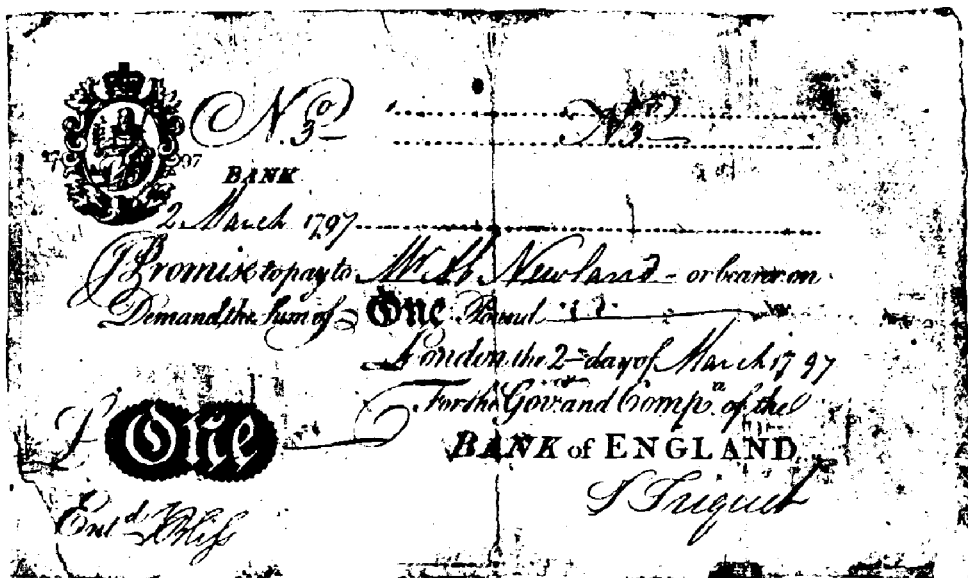 No 3 No 3
17 97
BANK
2 March 1797
I Promise to pay to Mr Ab Newland or bearer on
Demand the Sum of One Pound
London the 2 day of March 1797
For the Govr and Compa of the
£ One
BANK of ENGLAND
Entd